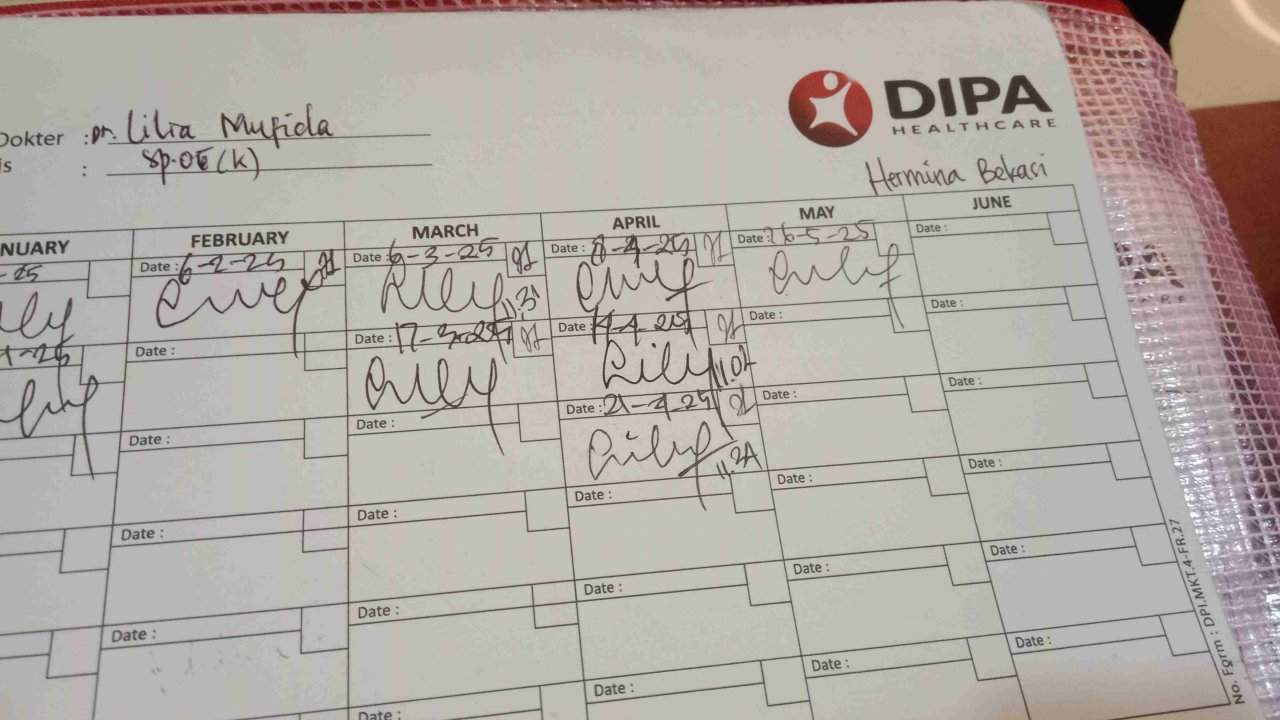 DIPA
HEALTHCARE
Dokter : Dr. Lilia Mufida
is : Sp.OG (K)
Hermina Bekasi
NUARY FEBRUARY MARCH APRIL MAY JUNE
-25 Date : 6-2-25 Date : 6-3-25 Date : 8-4-25 Date : 26-5-25 Date :
11.31
-25 Date : Date : 17-3-25 Date : 14-4-25 Date : Date :
11.02
Date : Date : Date : 21-4-25 Date : Date :
11.2A
Date : Date : Date : Date : Date :
Date : Date : Date : Date : Date :
Date : Date : Date : Date :
No. Form : DPI.MKT.4-FR.27